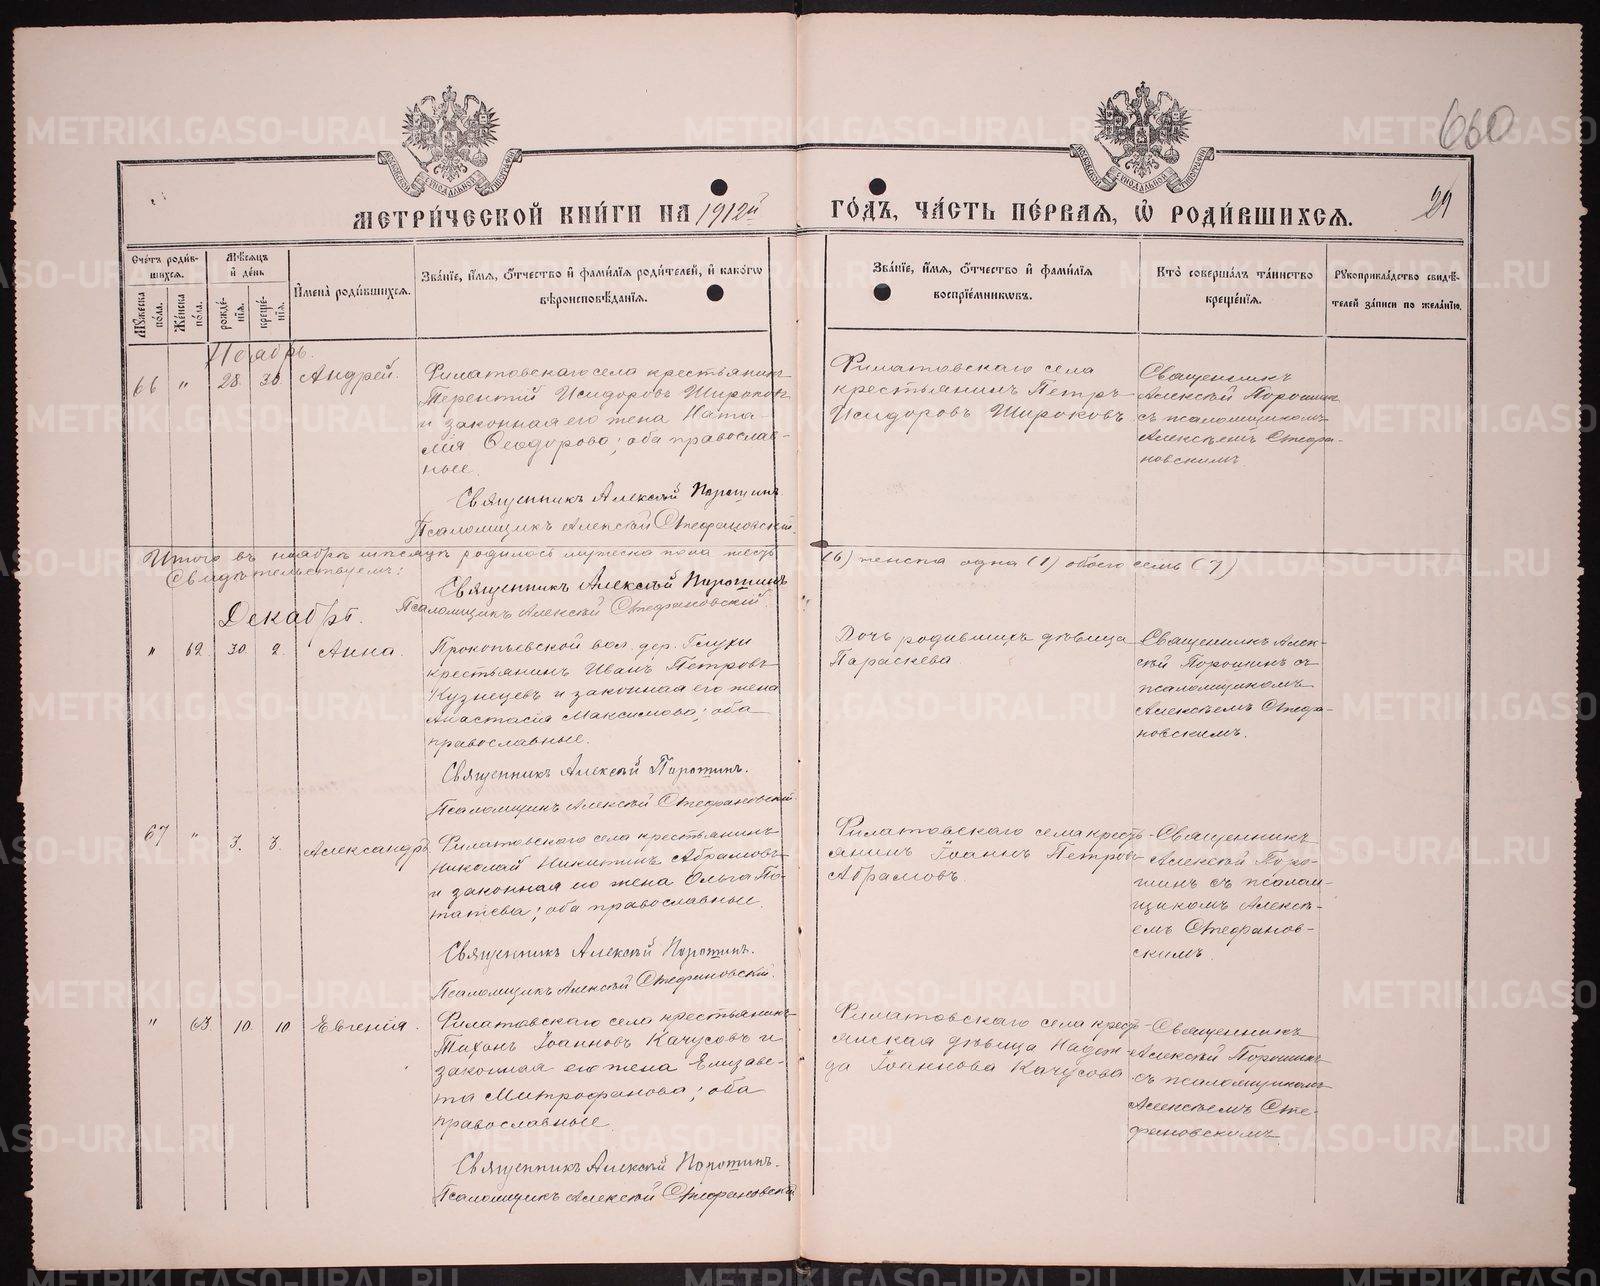 660
МОСКОВСКОЙ СѴНОДАЛЬНОЙ ТИПОГРАФІИ
МОСКОВСКОЙ СѴНОДАЛЬНОЙ ТИПОГРАФІИ
МЕТРИ́ЧЕСКОЙ КНИ́ГИ НА 1912й
ГО́ДЪ, ЧА́СТЬ ПЕ́РВАЯ, Ѡ РОДИ́ВШИХСЯ.
Сче́тъ роди́в-
шихся.
Мꙋ́жеска по́ла.
Же́нска по́ла.
Мѣ́сяцъ
и де́нь
рожде́-
нїя.
креще́-
нїя.
Имена̀ роди́вшихся.
Зва́нїе, и́мя, о́тчество и фами́лїя роди́телей, и како́гѡ
вѣроисповѣ́данїя.
Зва́нїе, и́мя, о́тчество и фами́лїя
воспрїе́мникѡвъ.
Кто̀ соверша́лъ та́инство
креще́нїя.
Рꙋкоприкла́дство свидѣ́-
телей за́писи по жела́нїю.
Ноябрь.
66 " 28. 30 Андрей.
Филатовскаго села крестьянинъ
Терентій Исидоровъ Широковъ
и законная его жена Ната-
лія Ѳеодорова; оба православ-
ные.
Священникъ Алексѣй Порошинъ.
Псаломщикъ Алексѣй Стефановскій.
Филатовскаго села
крестьянинъ Петръ
Исидоровъ Широковъ
Священникъ
Алексѣй Порошин
съ псаломщикомъ
Алексѣемъ Стефа-
новскимъ
Итого въ ноябрѣ мѣсяцѣ родилось мужеска пола шесть
(6) женска одна (1) обоего семь (7)
Свидѣтельствуемъ:
Священникъ Алексѣй Порошинъ
Псаломщикъ Алексѣй Стефановскій.
Декабрь.
" 62. 30. 2. Анна.
Прокопьевской вол. дер. Глухи
крестьянинъ Иванъ Петровъ
Кузнецевъ и законная его жена
Анастасія Максимова; оба
православные.
Священникъ Алексѣй Порошинъ.
Псаломщикъ Алексѣй Стефановскій.
Дочь родившихъ дѣвица
Параскева.
Священникъ Алек-
сѣй Порошинъ съ
псаломщикомъ
Алексѣемъ Стефа-
новскимъ.
67 " 3. 3. Александръ
Филатовскаго села крестьянинъ
Николай Никитинъ Абрамовъ
и законная его жена Ольга
оба православные.
Священникъ Алексѣй Порошинъ.
Псаломщикъ Алексѣй Стефановскій.
Филатовскаго села кресть-
янинъ Іоаннъ Петровъ
Абрамовъ.
Священникъ
Алексѣй Поро-
шинъ съ псалом-
щикомъ Алексѣ-
емъ Стефанов-
скимъ.
" 63 10. 10. Евгенія.
Филатовскаго села крестьянинъ
Тихонъ Іоанновъ Качусовъ и
законная его жена Елизаве-
та Митрофанова; оба
православные.
Священникъ Алексѣй Порошинъ.
Псаломщикъ Алексѣй Стефановскій
Филатовскаго села кресть-
янская дѣвица Надеж-
да Іоаннова Качусова
Священникъ
Алексѣй Порошинъ
съ псаломщикомъ
Алексѣемъ Сте-
фановскимъ.
METRIKI.GASO-URAL.RU